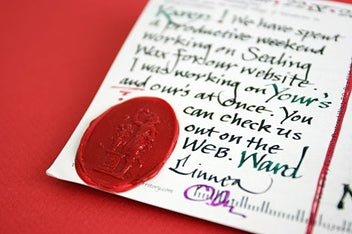 Karen! We have spent
a productive weekend
working on Sealing
Wax for our website.
I was working on Your's
and our's at once. You
can check us
out on the
WEB. Ward
Linnea